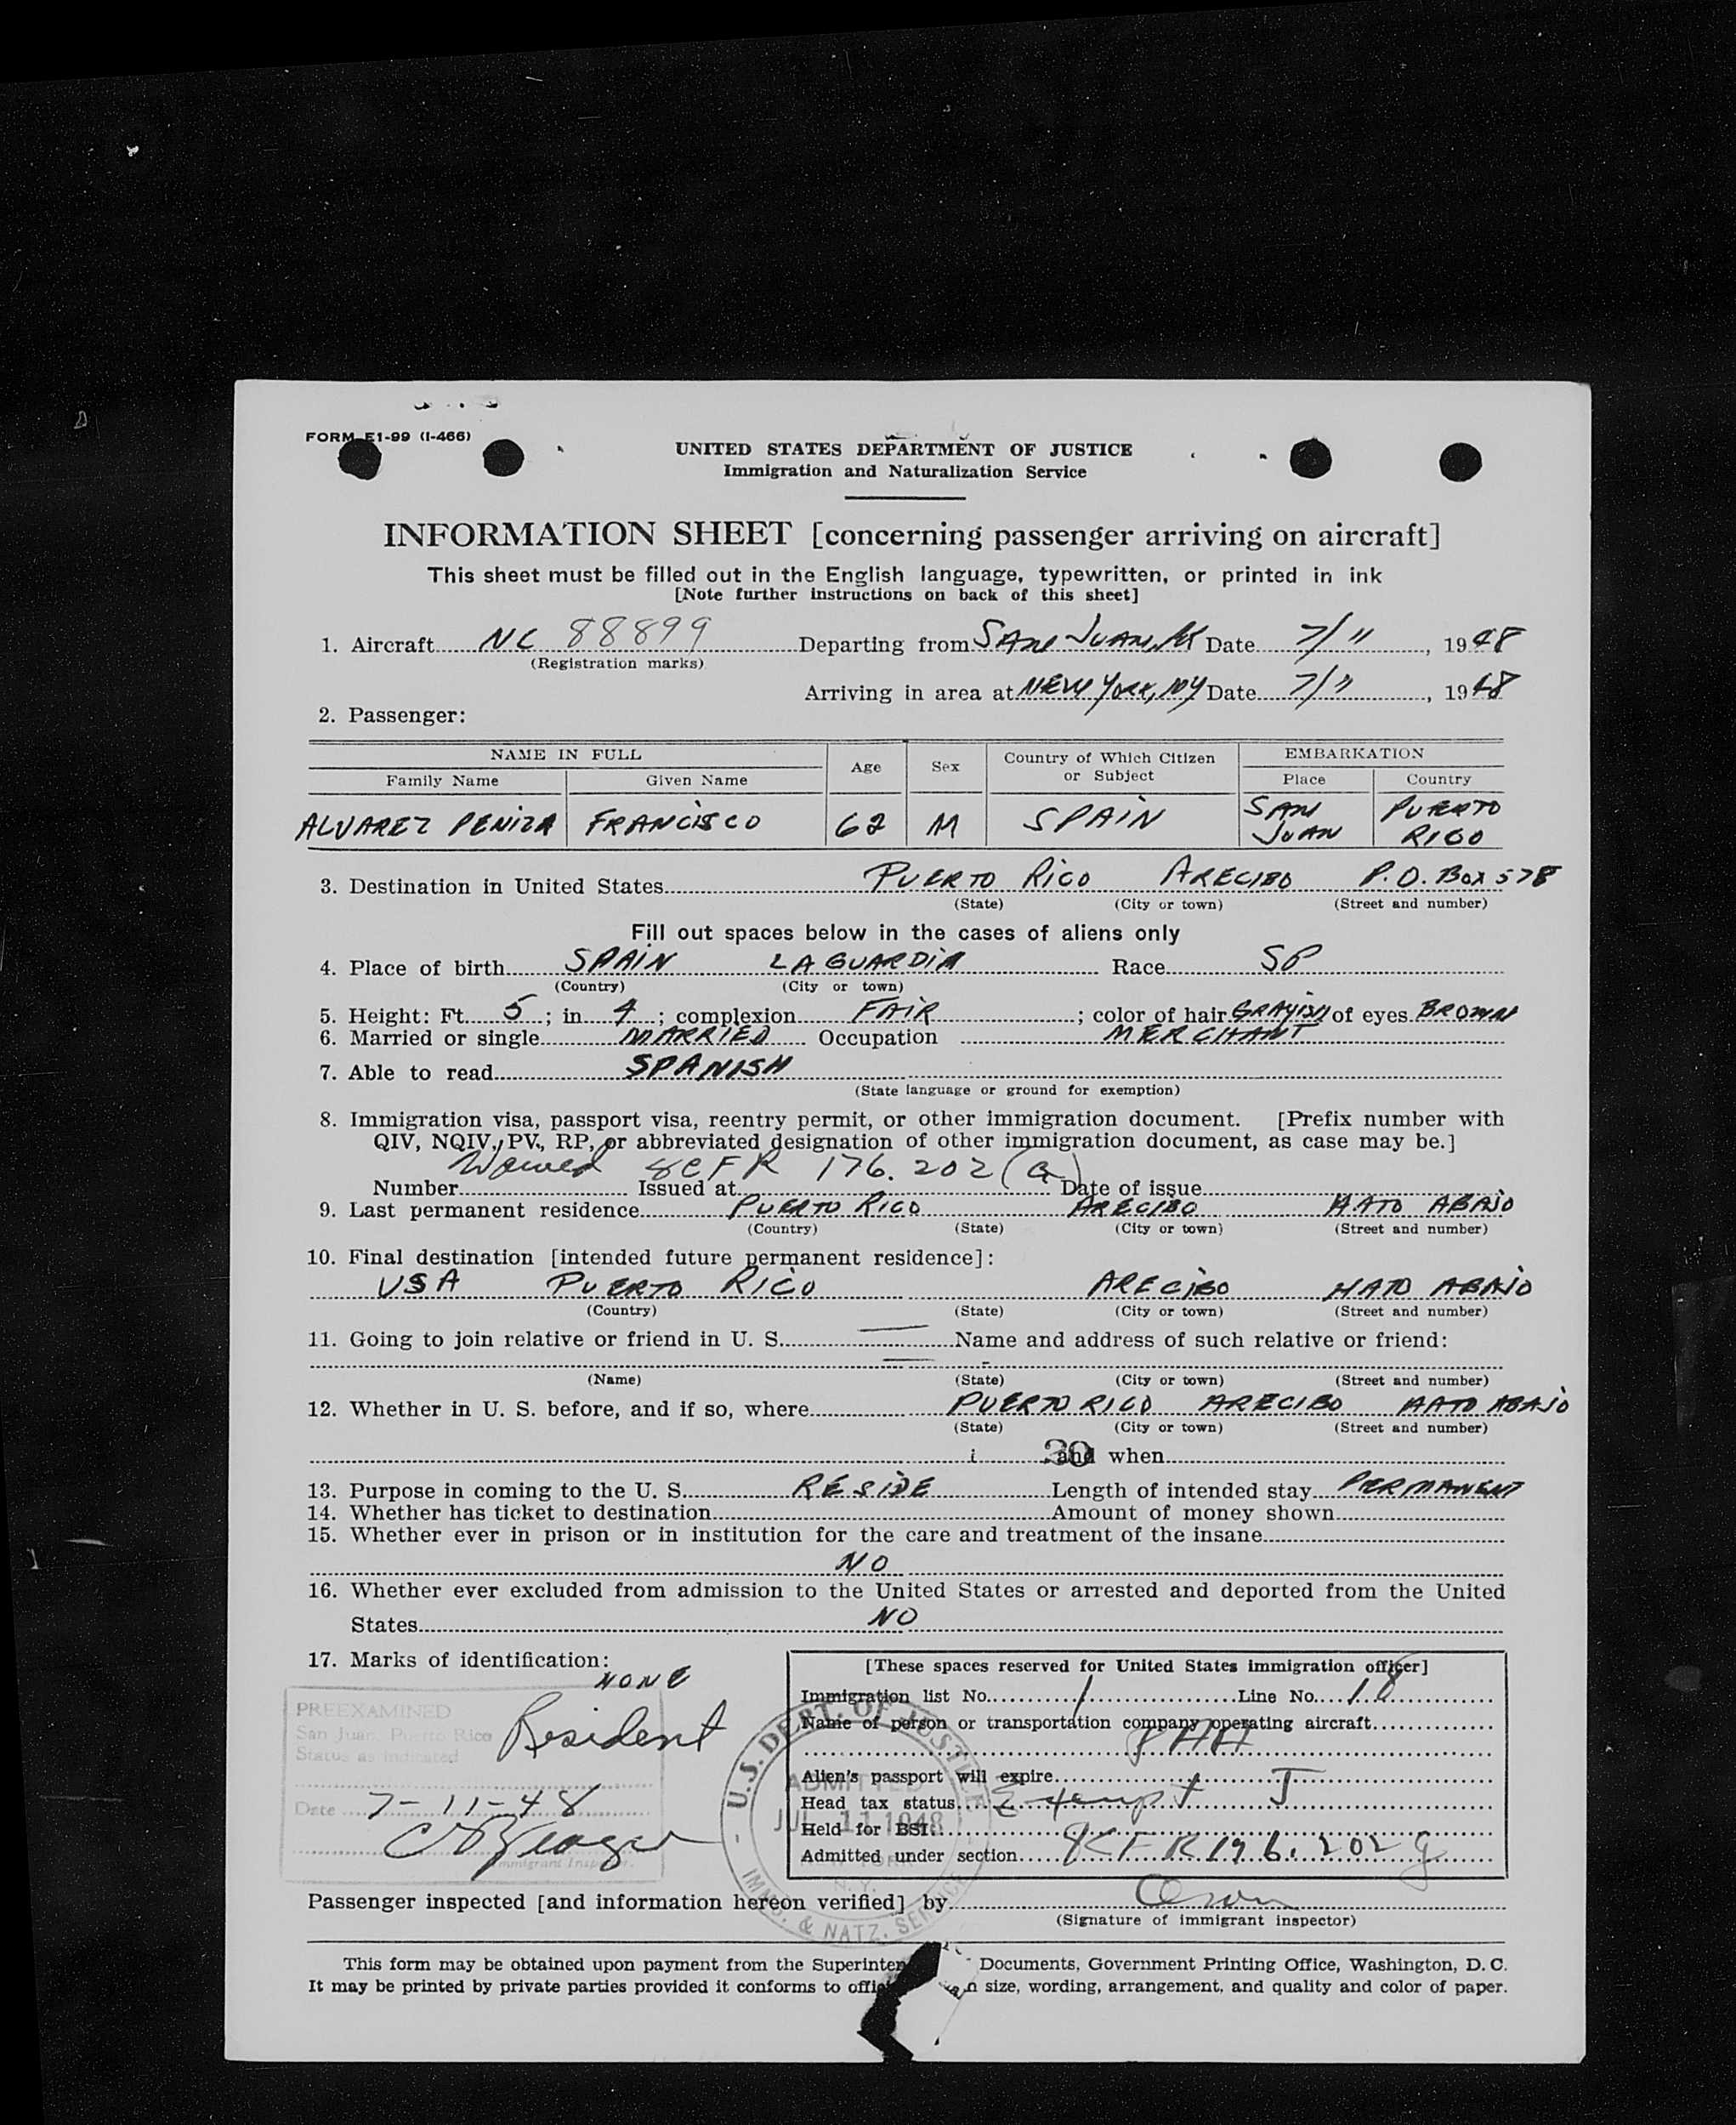 FORM E1-99 (I-466)
UNITED STATES DEPARTMENT OF JUSTICE
Immigration and Naturalization Service
INFORMATION SHEET [concerning passenger arriving on aircraft]
This sheet must be filled out in the English language, typewritten, or printed in ink
[Note further instructions on back of this sheet]
1. Aircraft NC 88899 Departing from SAN JUAN, PR Date 7/11, 1948
(Registration marks)
Arriving in area at NEW YORK, NY Date 7/11, 1948
2. Passenger:
NAME IN FULL Age Sex Country of Which Citizen or Subject EMBARKATION
Family Name Given Name Place Country
ALVAREZ PENIZA FRANCISCO 62 M SPAIN SAN JUAN PUERTO RICO
3. Destination in United States PUERTO RICO ARECIBO P.O. Box 578
(State) (City or town) (Street and number)
Fill out spaces below in the cases of aliens only
4. Place of birth SPAIN LA GUARDIA Race SP
(Country) (City or town)
5. Height: Ft. 5; in. 4; complexion FAIR; color of hair GRAYISH of eyes BROWN
6. Married or single MARRIED Occupation MERCHANT
7. Able to read SPANISH
(State language or ground for exemption)
8. Immigration visa, passport visa, reentry permit, or other immigration document. [Prefix number with
QIV, NQIV, PV, RP, or abbreviated designation of other immigration document, as case may be.]
Waived 8 CFR 176.202(a)
Number Issued at Date of issue
9. Last permanent residence PUERTO RICO ARECIBO HATO ABAJO
(Country) (State) (City or town) (Street and number)
10. Final destination [intended future permanent residence]:
USA PUERTO RICO ARECIBO HATO ABAJO
(Country) (State) (City or town) (Street and number)
11. Going to join relative or friend in U. S. — Name and address of such relative or friend:
— -
(Name) (State) (City or town) (Street and number)
12. Whether in U. S. before, and if so, where PUERTO RICO ARECIBO HATO ABAJO
(State) (City or town) (Street and number)
30 and when
13. Purpose in coming to the U. S. RESIDE Length of intended stay PERMANENT
14. Whether has ticket to destination Amount of money shown
15. Whether ever in prison or in institution for the care and treatment of the insane
NO
16. Whether ever excluded from admission to the United States or arrested and deported from the United
States NO
17. Marks of identification:
NONE
PREEXAMINED
San Juan, Puerto Rico
Status as indicated
Resident
Date 7-11-48
Immigrant Inspector.
[These spaces reserved for United States immigration officer]
Immigration list No. 1 Line No. 18
Name of person or transportation company operating aircraft
PAA
Alien's passport will expire
Head tax status Exempt J
Held for BSI
Admitted under section 8 CFR 176.202 g
U.S. DEPT. OF JUSTICE
ADMITTED
JUL 11 1948
NEW YORK
N. Y.
IMMG. & NATZ. SERVICE
Passenger inspected [and information hereon verified] by
(Signature of immigrant inspector)
This form may be obtained upon payment from the Superinten Documents, Government Printing Office, Washington, D. C.
It may be printed by private parties provided it conforms to offi in size, wording, arrangement, and quality and color of paper.